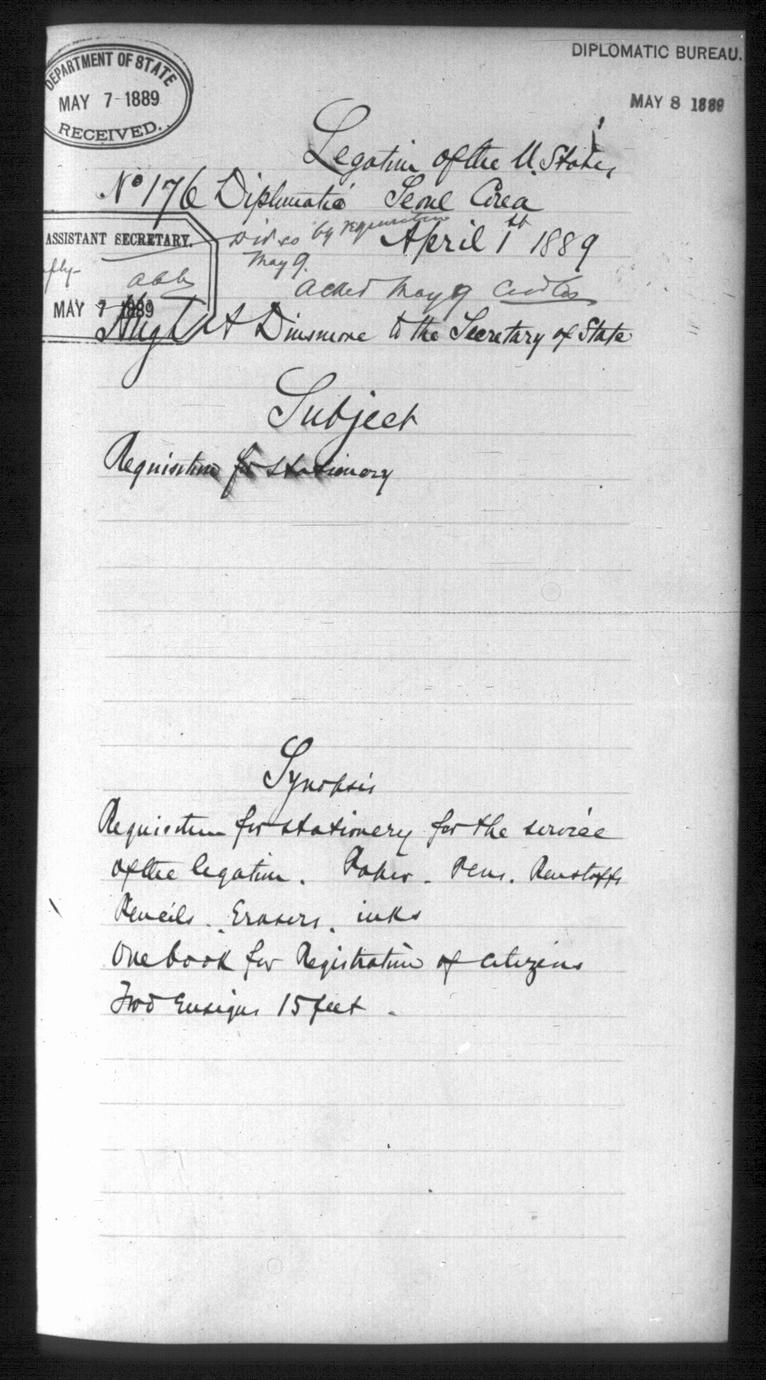 DEPARTMENT OF STATE
MAY 7 1889
RECEIVED.
DIPLOMATIC BUREAU.
MAY 8 1889
Legation of the U. States
No 176 Diplomatic Seoul Corea
by requisition
April 1st 1889
May 9.
ASSISTANT SECRETARY.
MAY 7 1889
acked May 9
Hugh A Dinsmore to the Secretary of State
Subject
Requisition for stationery
Synopsis
Requisition for stationery for the service
of the legation. Paper. Pens. Penstaffs
Pencils. Erasers. inks
One book for Registration of citizens
Two Ensigns 15 feet.